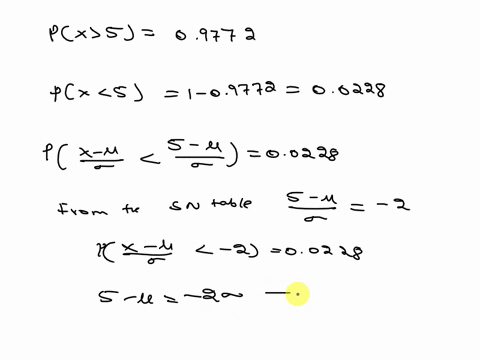 P(x>5) = 0.9772
P(x<5) = 1-0.9772 = 0.0228
P( (x-μ)/σ < (5-μ)/σ ) = 0.0228
From the SN table (5-μ)/σ = -2
P( (x-μ)/σ < -2) = 0.0228
5-μ = -2σ —